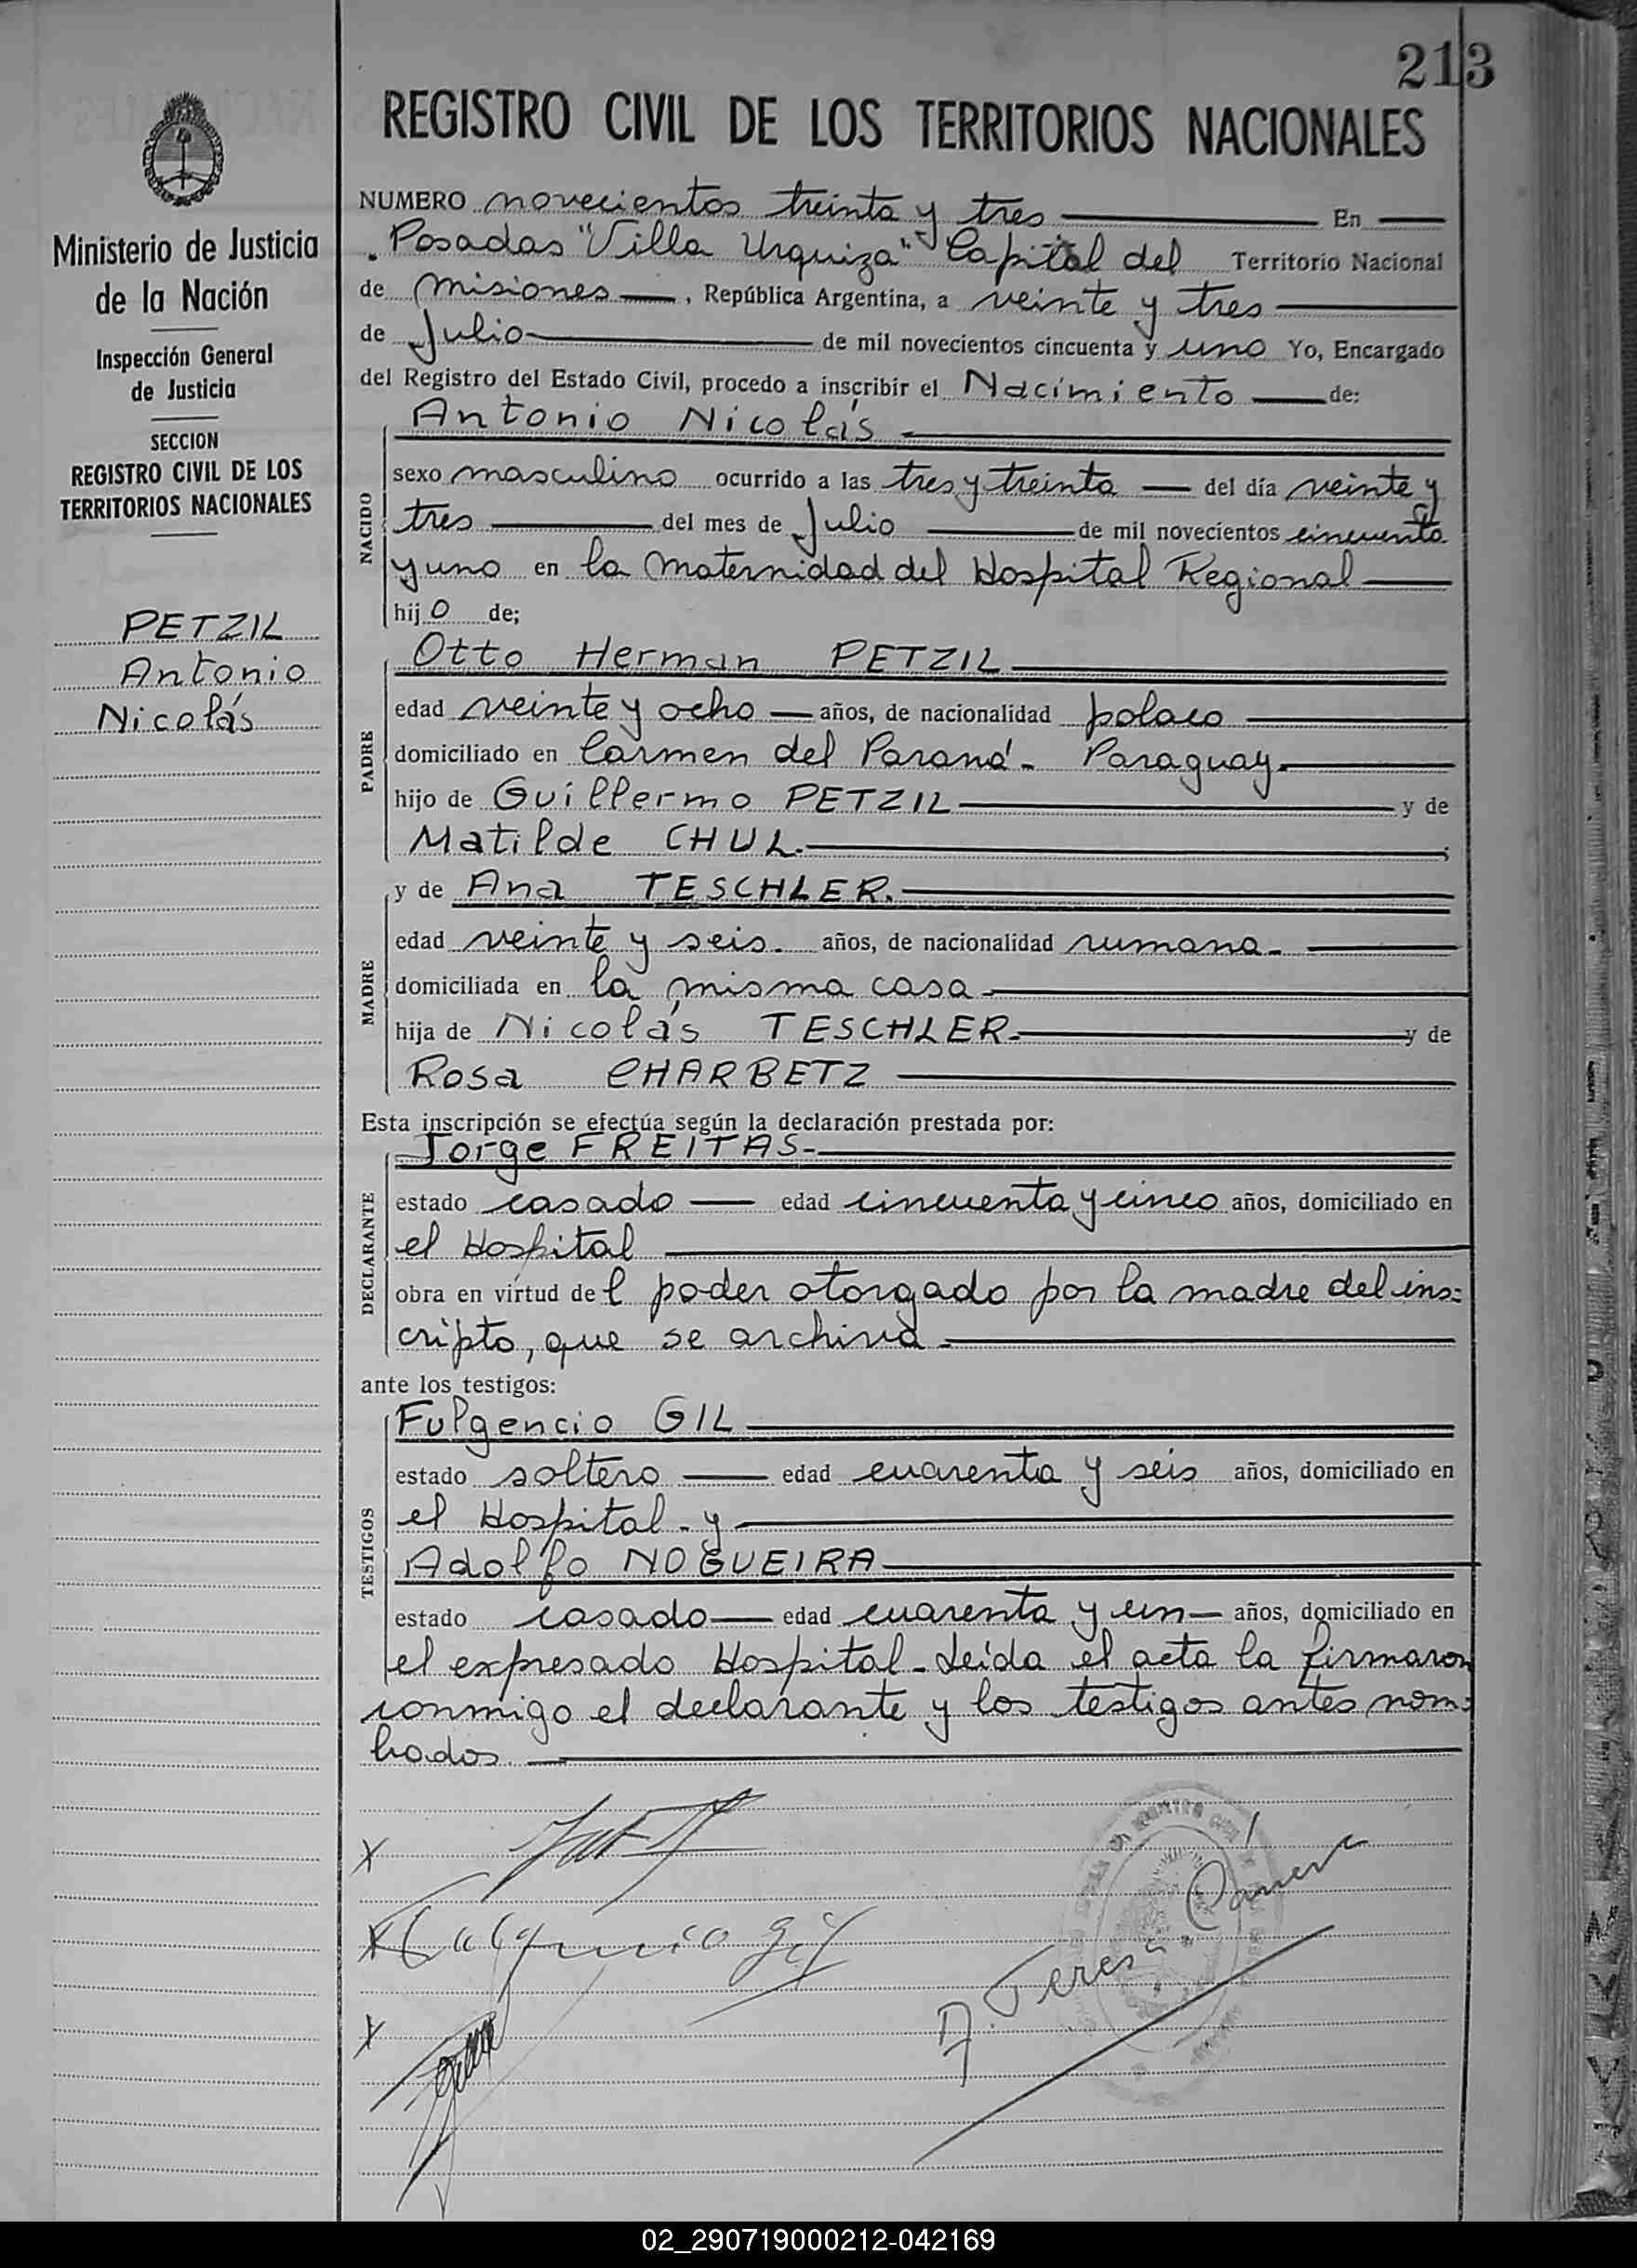 213
REGISTRO CIVIL DE LOS TERRITORIOS NACIONALES
Ministerio de Justicia
de la Nación
Inspección General
de Justicia
SECCION
REGISTRO CIVIL DE LOS
TERRITORIOS NACIONALES
PETZIL
Antonio
Nicolás
NUMERO novecientos treinta y tres En
Posadas "Villa Urquiza" Capital del Territorio Nacional
de Misiones, República Argentina, a veinte y tres
de Julio de mil novecientos cincuenta y uno Yo, Encargado
del Registro del Estado Civil, procedo a inscribir el Nacimiento de:
Antonio Nicolás
NACIDO
sexo masculino ocurrido a las tres y treinta del día veinte y
tres del mes de Julio de mil novecientos cincuenta
y uno en la Maternidad del Hospital Regional
hijo de;
PADRE
Otto Herman PETZIL
edad veinte y ocho años, de nacionalidad polaco
domiciliado en Carmen del Paraná - Paraguay.
hijo de Guillermo PETZIL y de
Matilde CHUL. ;
MADRE
y de Ana TESCHLER.
edad veinte y seis. años, de nacionalidad rumana.
domiciliada en la misma casa
hija de Nicolás TESCHLER. y de
Rosa CHARBETZ
Esta inscripción se efectúa según la declaración prestada por:
DECLARANTE
Jorge FREITAS.
estado casado edad cincuenta y cinco años, domiciliado en
el Hospital
obra en virtud del poder otorgado por la madre del ins=
cripto, que se archiva.
ante los testigos:
TESTIGOS
Fulgencio GIL
estado soltero edad cuarenta y seis años, domiciliado en
el Hospital - y
Adolfo NOGUEIRA
estado casado edad cuarenta y un años, domiciliado en
el expresado Hospital - Leída el acta la firmaron
conmigo el declarante y los testigos antes nom=
brados.
x
x Fulgencio Gil
x
02_290719000212-042169